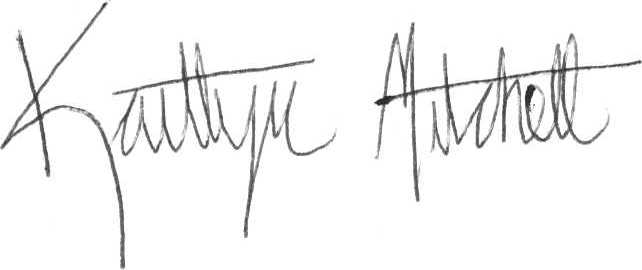 Kaitlyn Mitchell